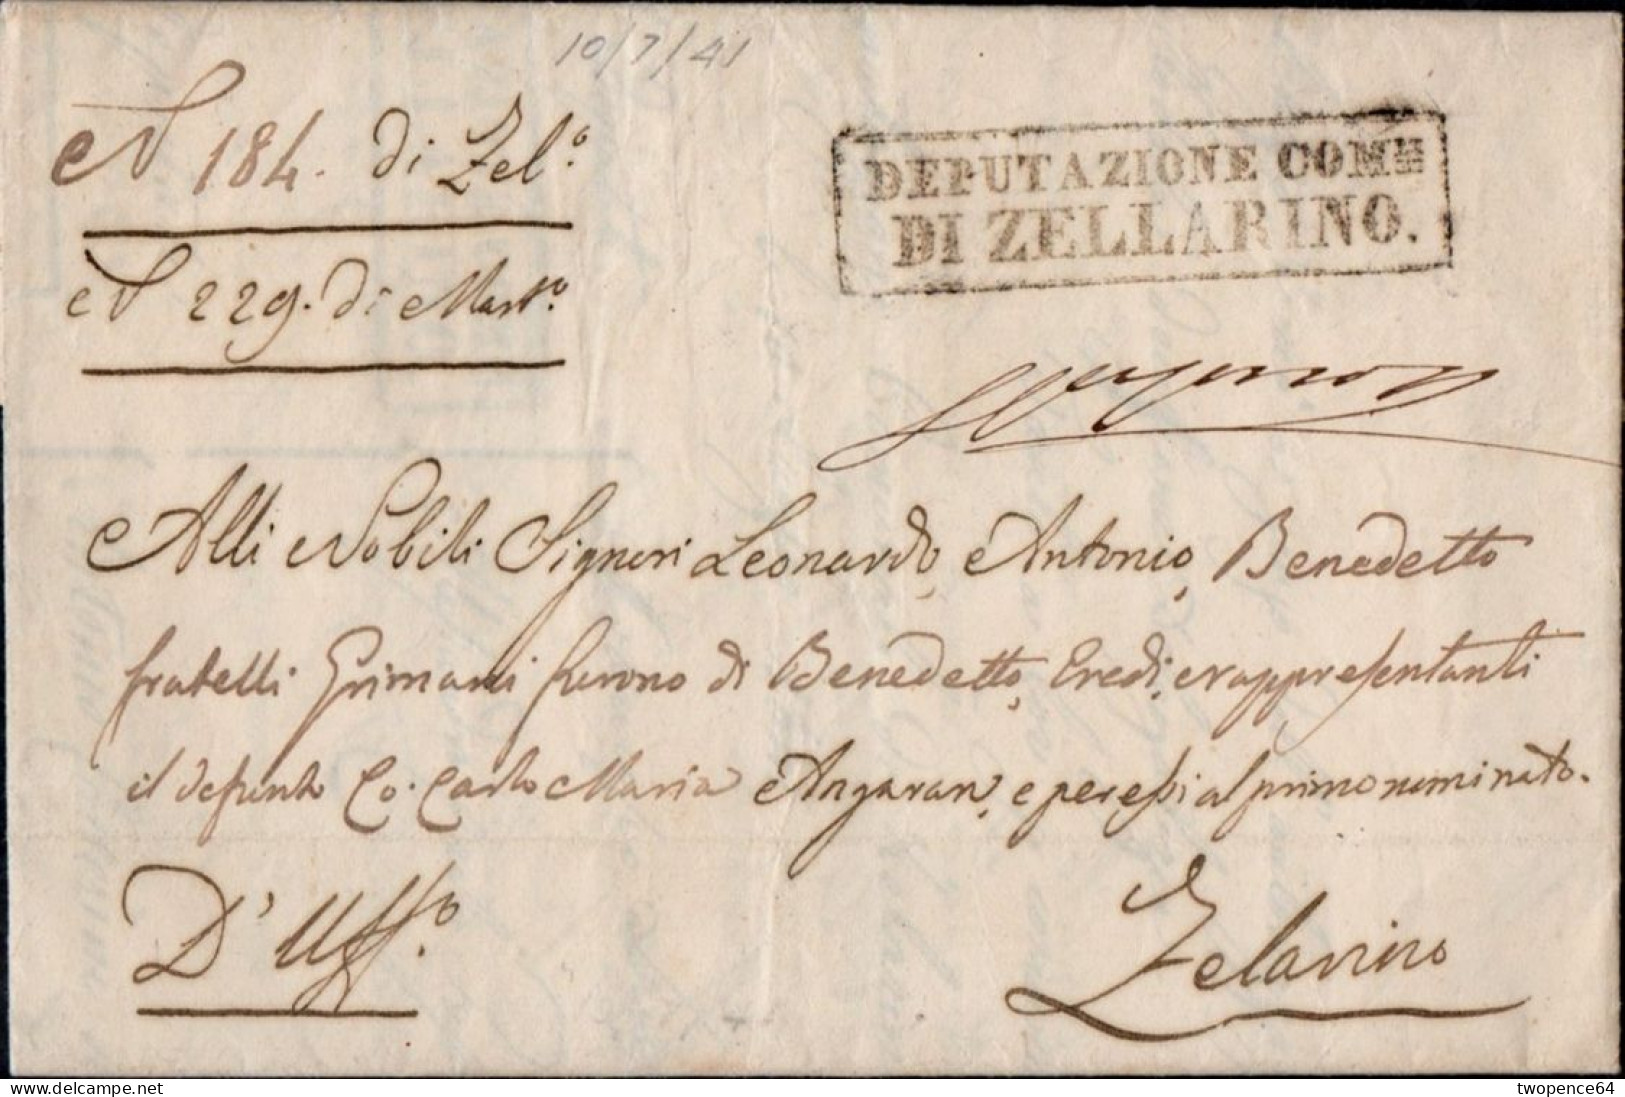 10/7/41
N 184. di Zel.º
DEPUTAZIONE COM.LE
DI ZELLARINO.
N 229. di Mart.º
Alli Nobili Signori Leonardo, Antonio, Benedetto
fratelli Grimani furono di Benedetto, Eredi, e rappresentanti
il defunto Co. Carlo Maria Angaran, e per essi al primo nominato.
D'Uff.º
Zelarino
delcampe.net
twopence64